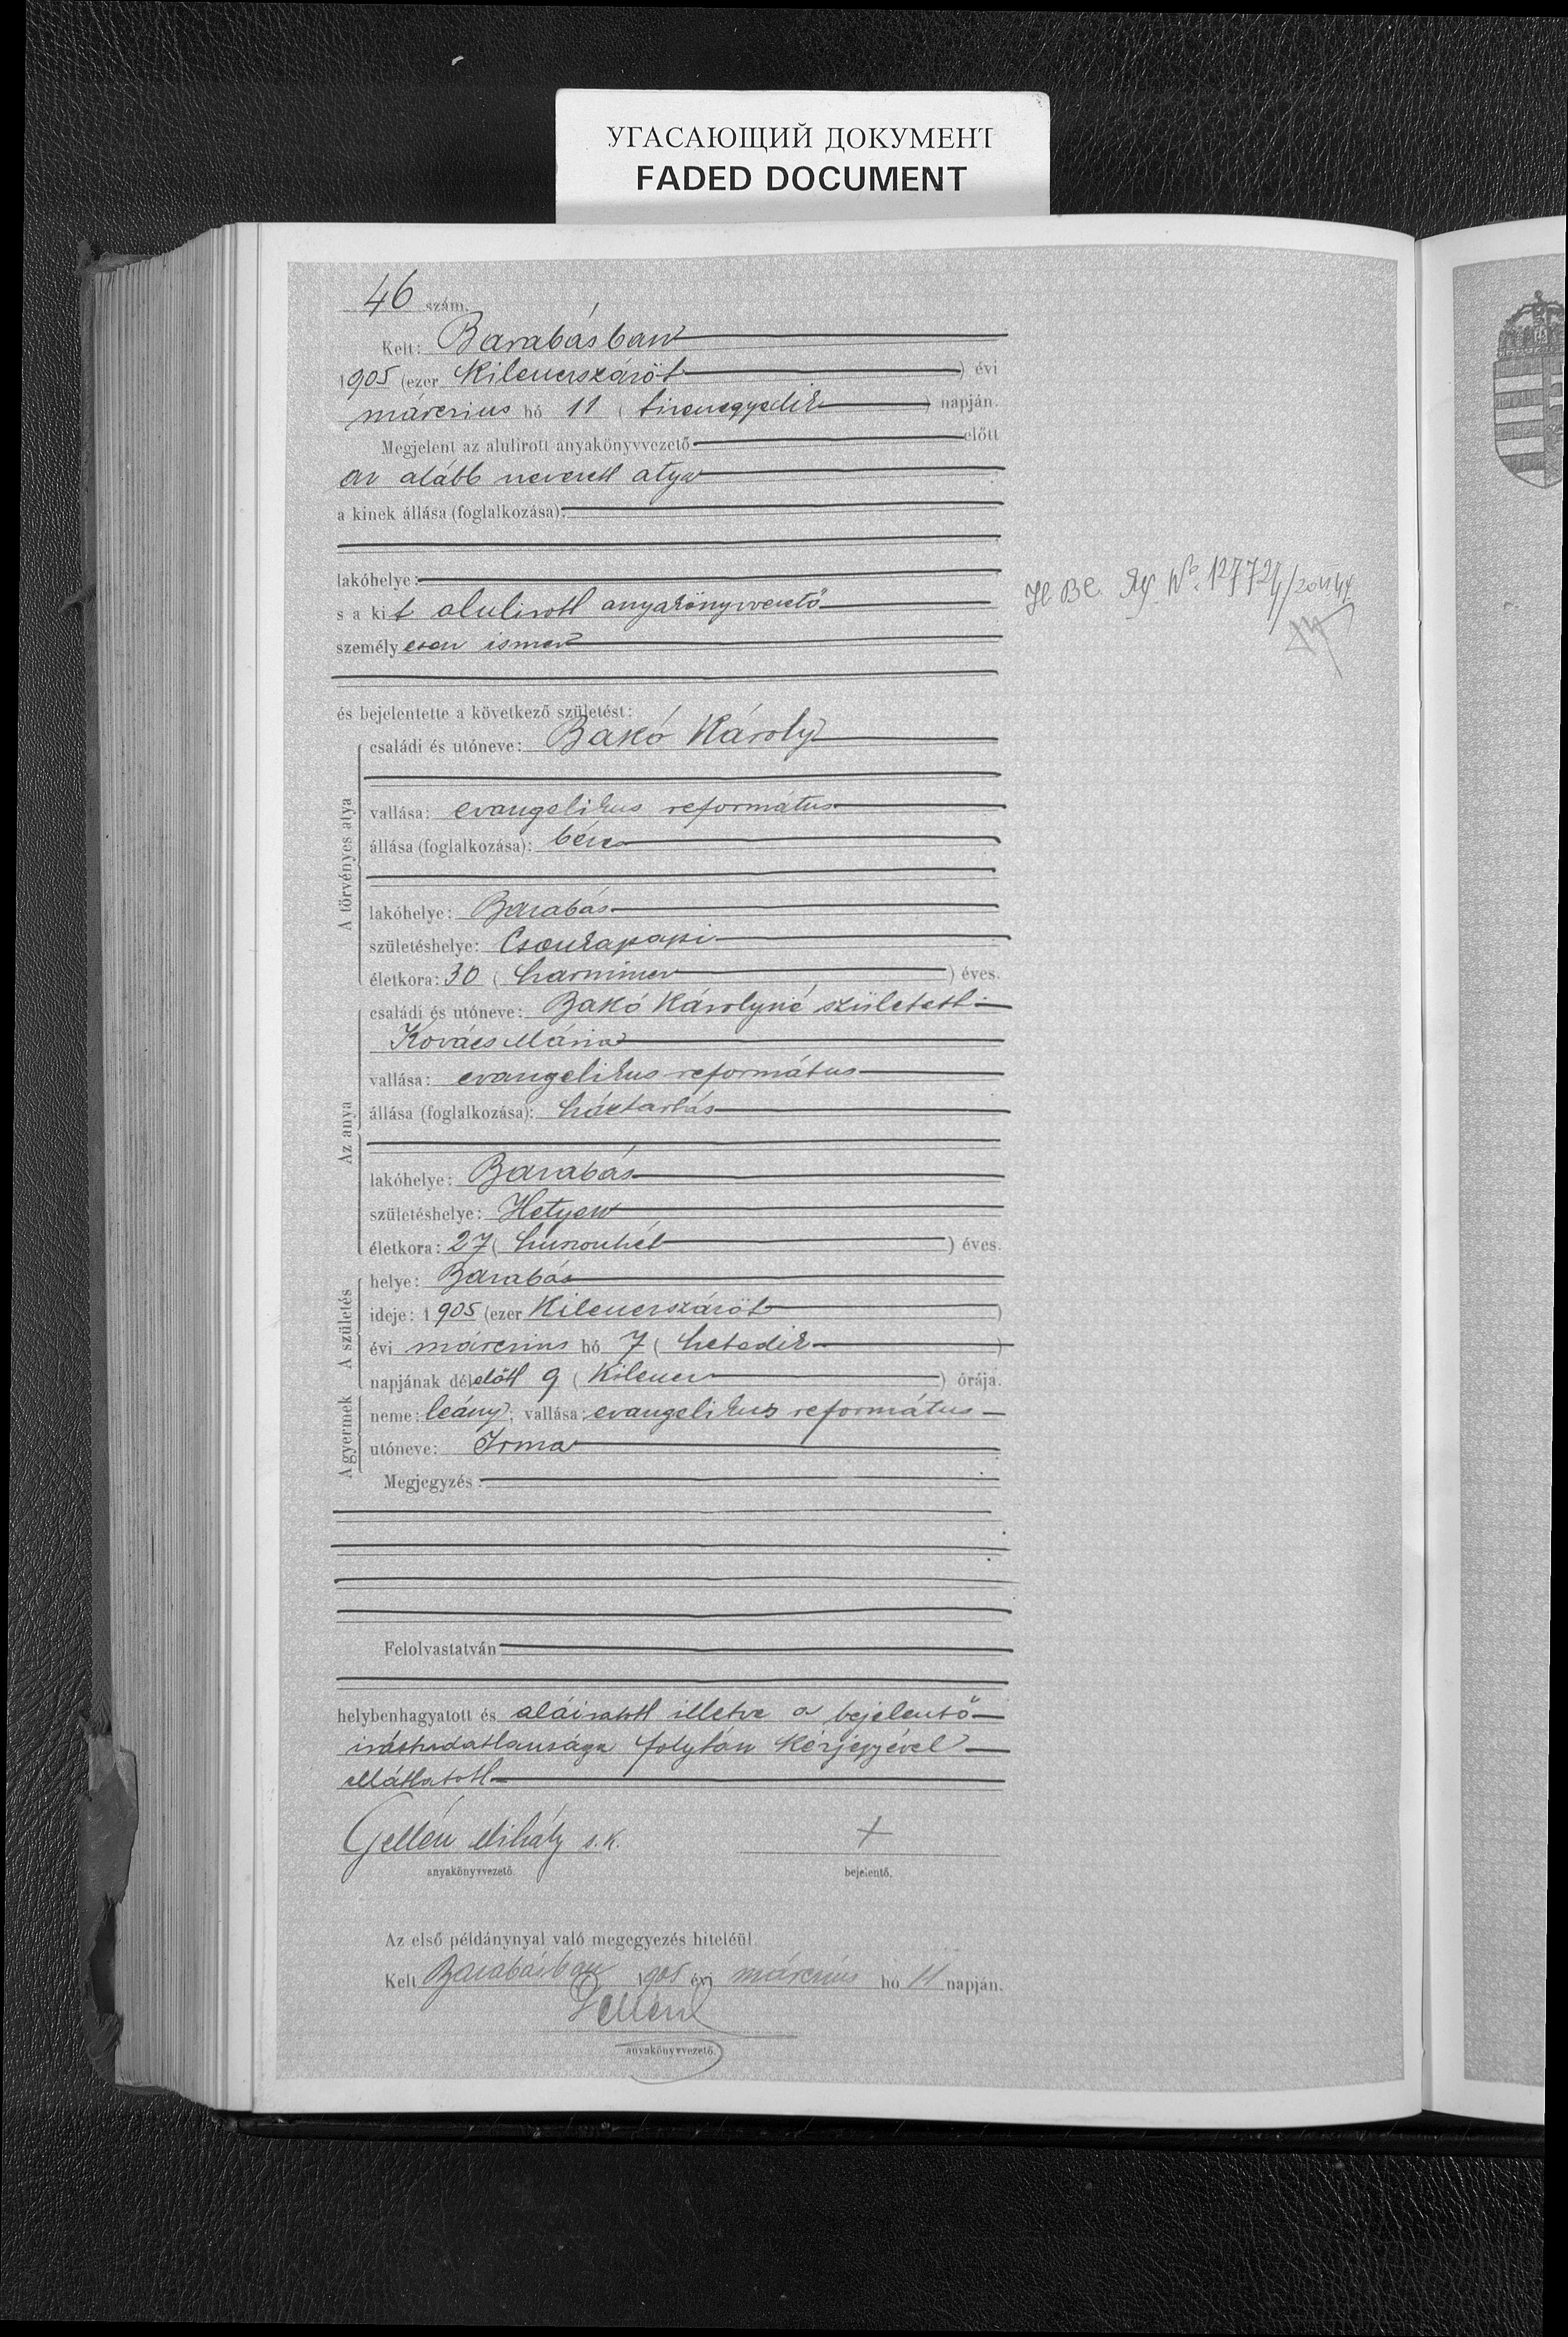 УГАСАЮЩИЙ ДОКУМЕНТ
FADED DOCUMENT
46 szám.
Kelt: Barabásban
1905 (ezer kilencszázöt) évi
március hó 11 (tizenegyedik) napján.
Megjelent az alulirott anyakönyvvezető előtt
az alább nevezett atya
a kinek állása (foglalkozása):
lakóhelye:
s a kit alulirott anyakönyvvezető
személyesen ismer
és bejelentette a következő születést:
A törvényes atya
családi és utóneve: Bakó Károly
vallása: evangelikus református
állása (foglalkozása): béres
lakóhelye: Barabás
születéshelye: Csonkapapi
életkora: 30 (harmincz) éves.
Az anya
családi és utóneve: Bakó Károlyné született
Kovács Mária
vallása: evangelikus református
állása (foglalkozása): háztartás
lakóhelye: Barabás
születéshelye: Hetyen
életkora: 27 (huszonhét) éves.
A születés
helye: Barabás
ideje: 1905 (ezer kilencszázöt)
évi március hó 7 (hetedik)
napjának délelőtt 9 (kilencz) órája.
A gyermek
neme: leány; vallása: evangelikus református
utóneve: Irma
Megjegyzés:
Felolvastatván
helybenhagyatott és aláiratott illetve a bejelentő
irástudatlansága folytán kézjegyével
elláttatott
Gellén Mihály s.k. +
anyakönyvvezető. bejelentő.
Az első példánynyal való megegyezés hiteléül.
Kelt Barabásban 1905 évi március hó 11 napján.
Gellén
anyakönyvvezető.